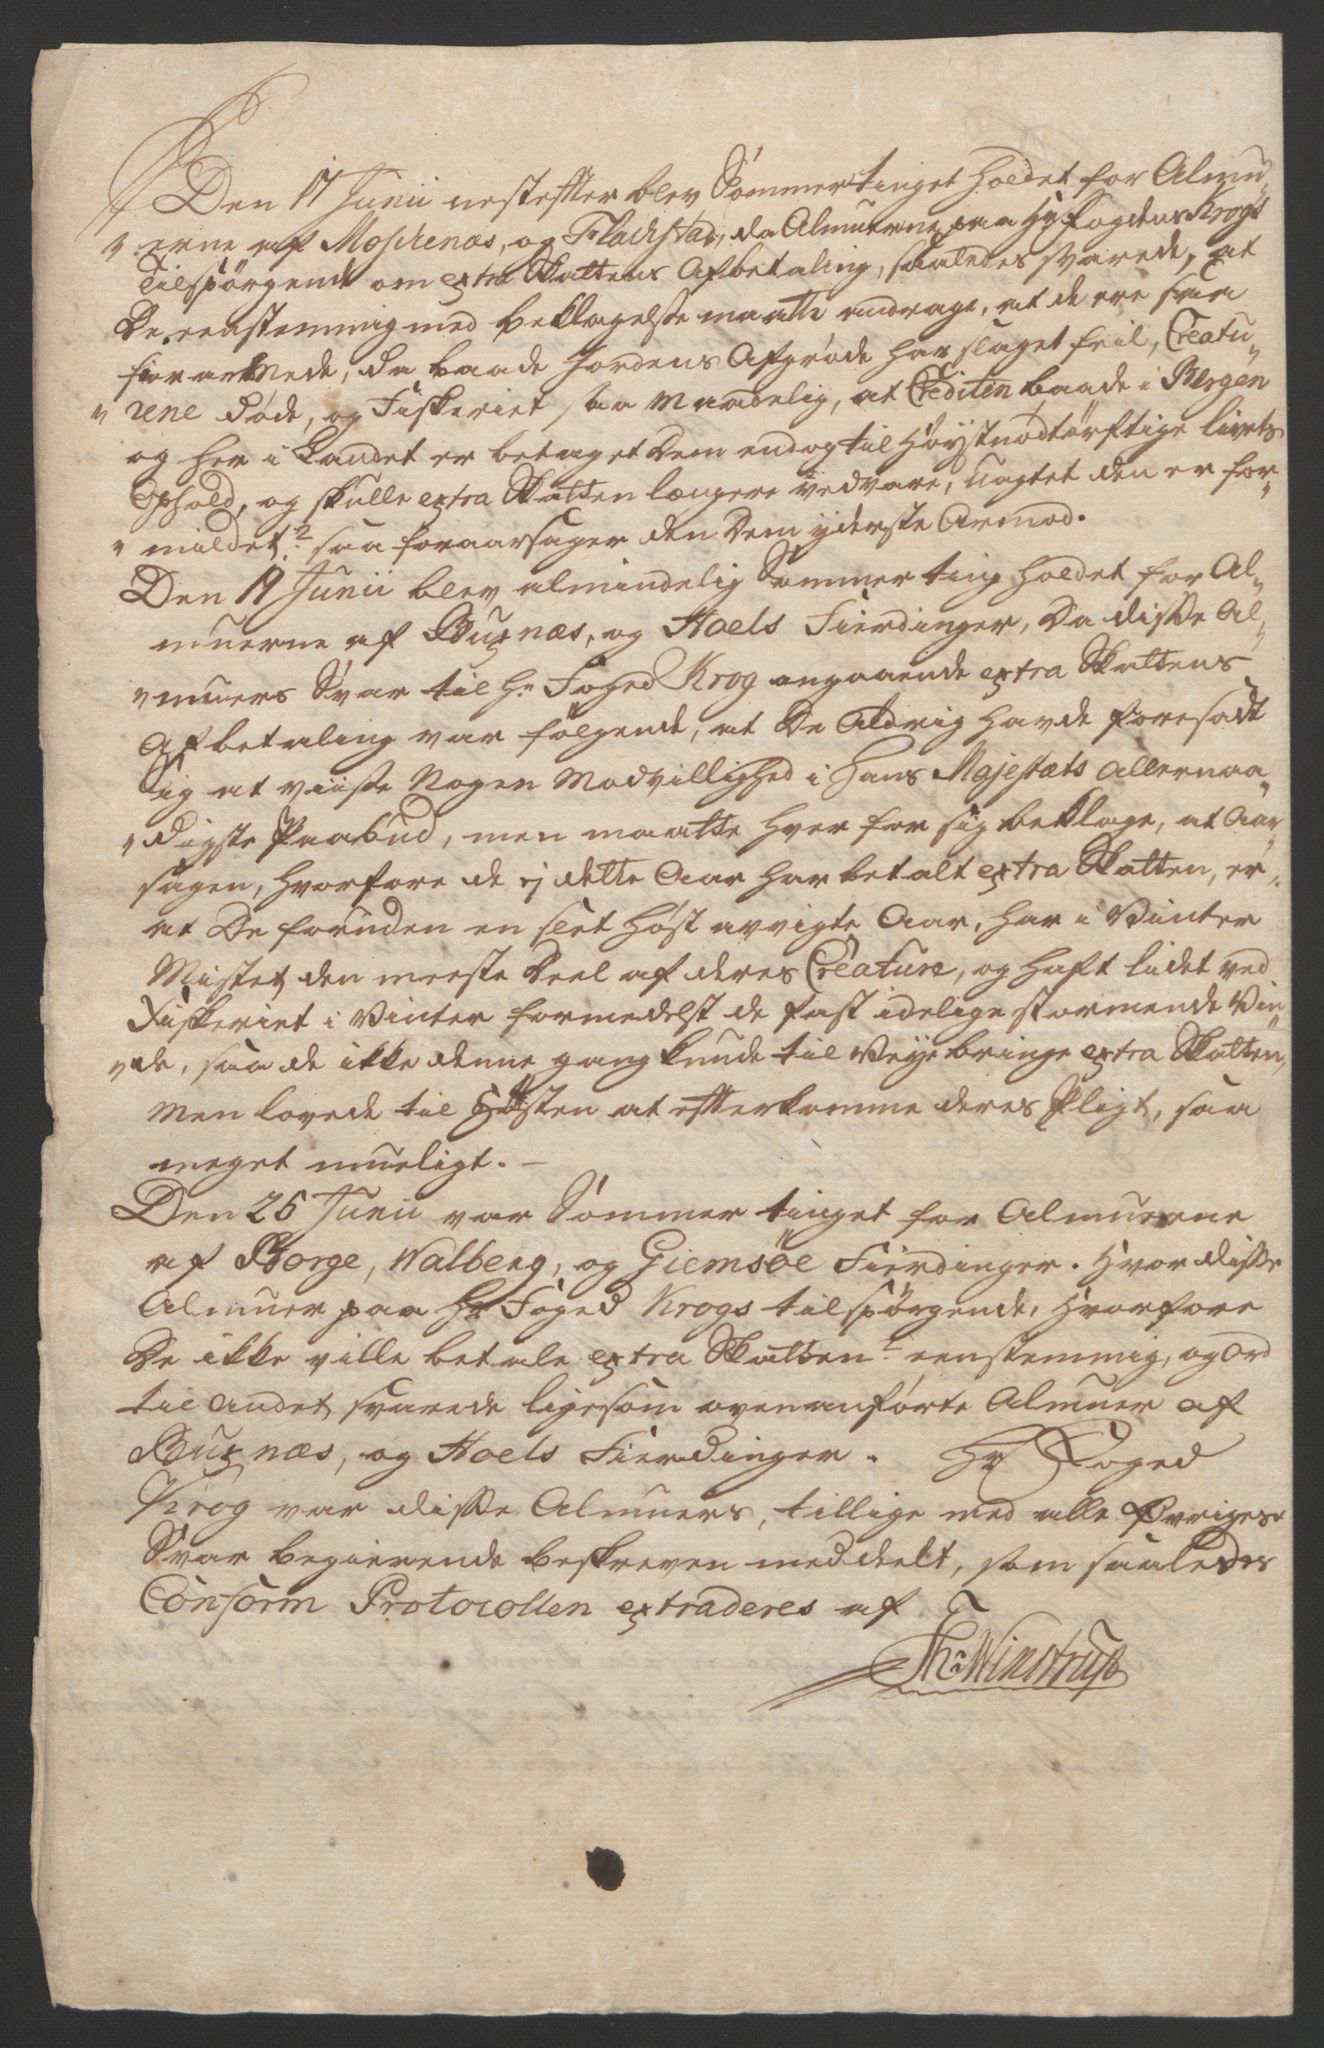 Den 17 Junii nestefter blev Sommertinget holdet for Almu-
erne af Moschenæs, og Flachstad, da Almuerne paa Hr Fogden Krogs
Tilspørgende om extra Skattens Afbetaling, saaledes svarede, at
De eenstemmig med beklagelsse maatte andrage, at de ere saa
forarmede, da baade Jordens Afgrøde har slaget feil, Creatu-
rene døde, og Fiskeriet saa Maadelig, at Crediten baade i Bergen
og her i Landet er betaget dem endog til høystnødtørftige livets
Ophold, og skulle extra Skatten længere vedvare, uagtet den er for-
mildet: saa foraarsager den dem yderste Armod.
Den 19 Junii blev almindelig Sommer ting holdet for Al-
muerne af Buxnæs, og Hoels Fierdinger, da disse Al-
muers Svar til Hr Foged Krog angaaende extra Skattens
Afbetaling var følgende, at De Aldrig havde foresadt
sig at viisse Nogen Modvillighed i Hans Majestæts Allernaa-
digste Paabud, men maatte hver for sig beklage, at Aar-
sagen, hvorfore de ej dette Aar har betalt extra Skatten, er,
at De foruden en slet Høst avvigte Aar, har i Vinter
Mistet den meeste Deel af deres Creature, og haft lidet ved
Fiskeriet i Vinter formedelst de fast idelige stormende Vin-
de, saa de ikke denne gang kunde til Veye bringe extra Skatten,
Men lovede til Høsten at efterkomme deres Pligt, saa
meget mueligt. –
Den 25 Junii var Sommer tinget for Almuerne
af Borge, Walberg, og Giemsøe Fierdinger. Hvor disse
Almuer paa Hr Foged Krogs tilspørgende, hvorfore
De ikke ville betale extra Skatten: eenstemmig, og Ord
til andet svarede ligesom ovenanførte Almuer af
Buxnæs, og Hoels Fierdinger. Hr Foged
Krog var disse Almuers, tillige med alle øvriges
Svar begierende beskreven meddeelt, som saaledes
Conform Protocollen extraderes af
Th: Winstrup